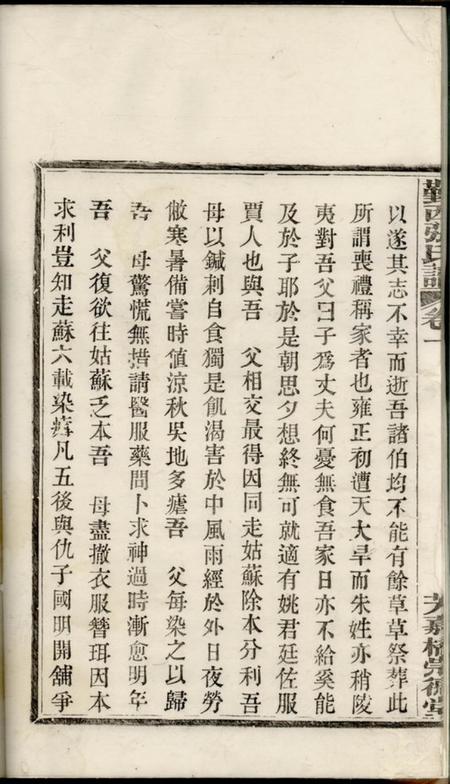 鄞西張氏譜 卷一
以遂其志不幸而逝吾諸伯均不能有餘草草祭葬此
所謂喪禮稱家者也雍正初遭天大旱而朱姓亦稍陵
夷對吾父曰子爲丈夫何憂無食吾家日亦不給奚能
及於子耶於是朝思夕想終無可就適有姚君廷佐服
賈人也與吾 父相交最得因同走姑蘇除本分利吾
母以鍼剌自食獨是飢渴害於中風雨經於外日夜勞
倣寒暑備嘗時値涼秋吳地多瘧吾 父每染之以歸
吾 母驚慌無措請醫服藥問卜求神過時漸愈明年
吾 父復欲往姑蘇乏本吾 母盡撤衣服簪珥因本
求利豈知走蘇六載染瘧凡五後與仇子國明開舖爭